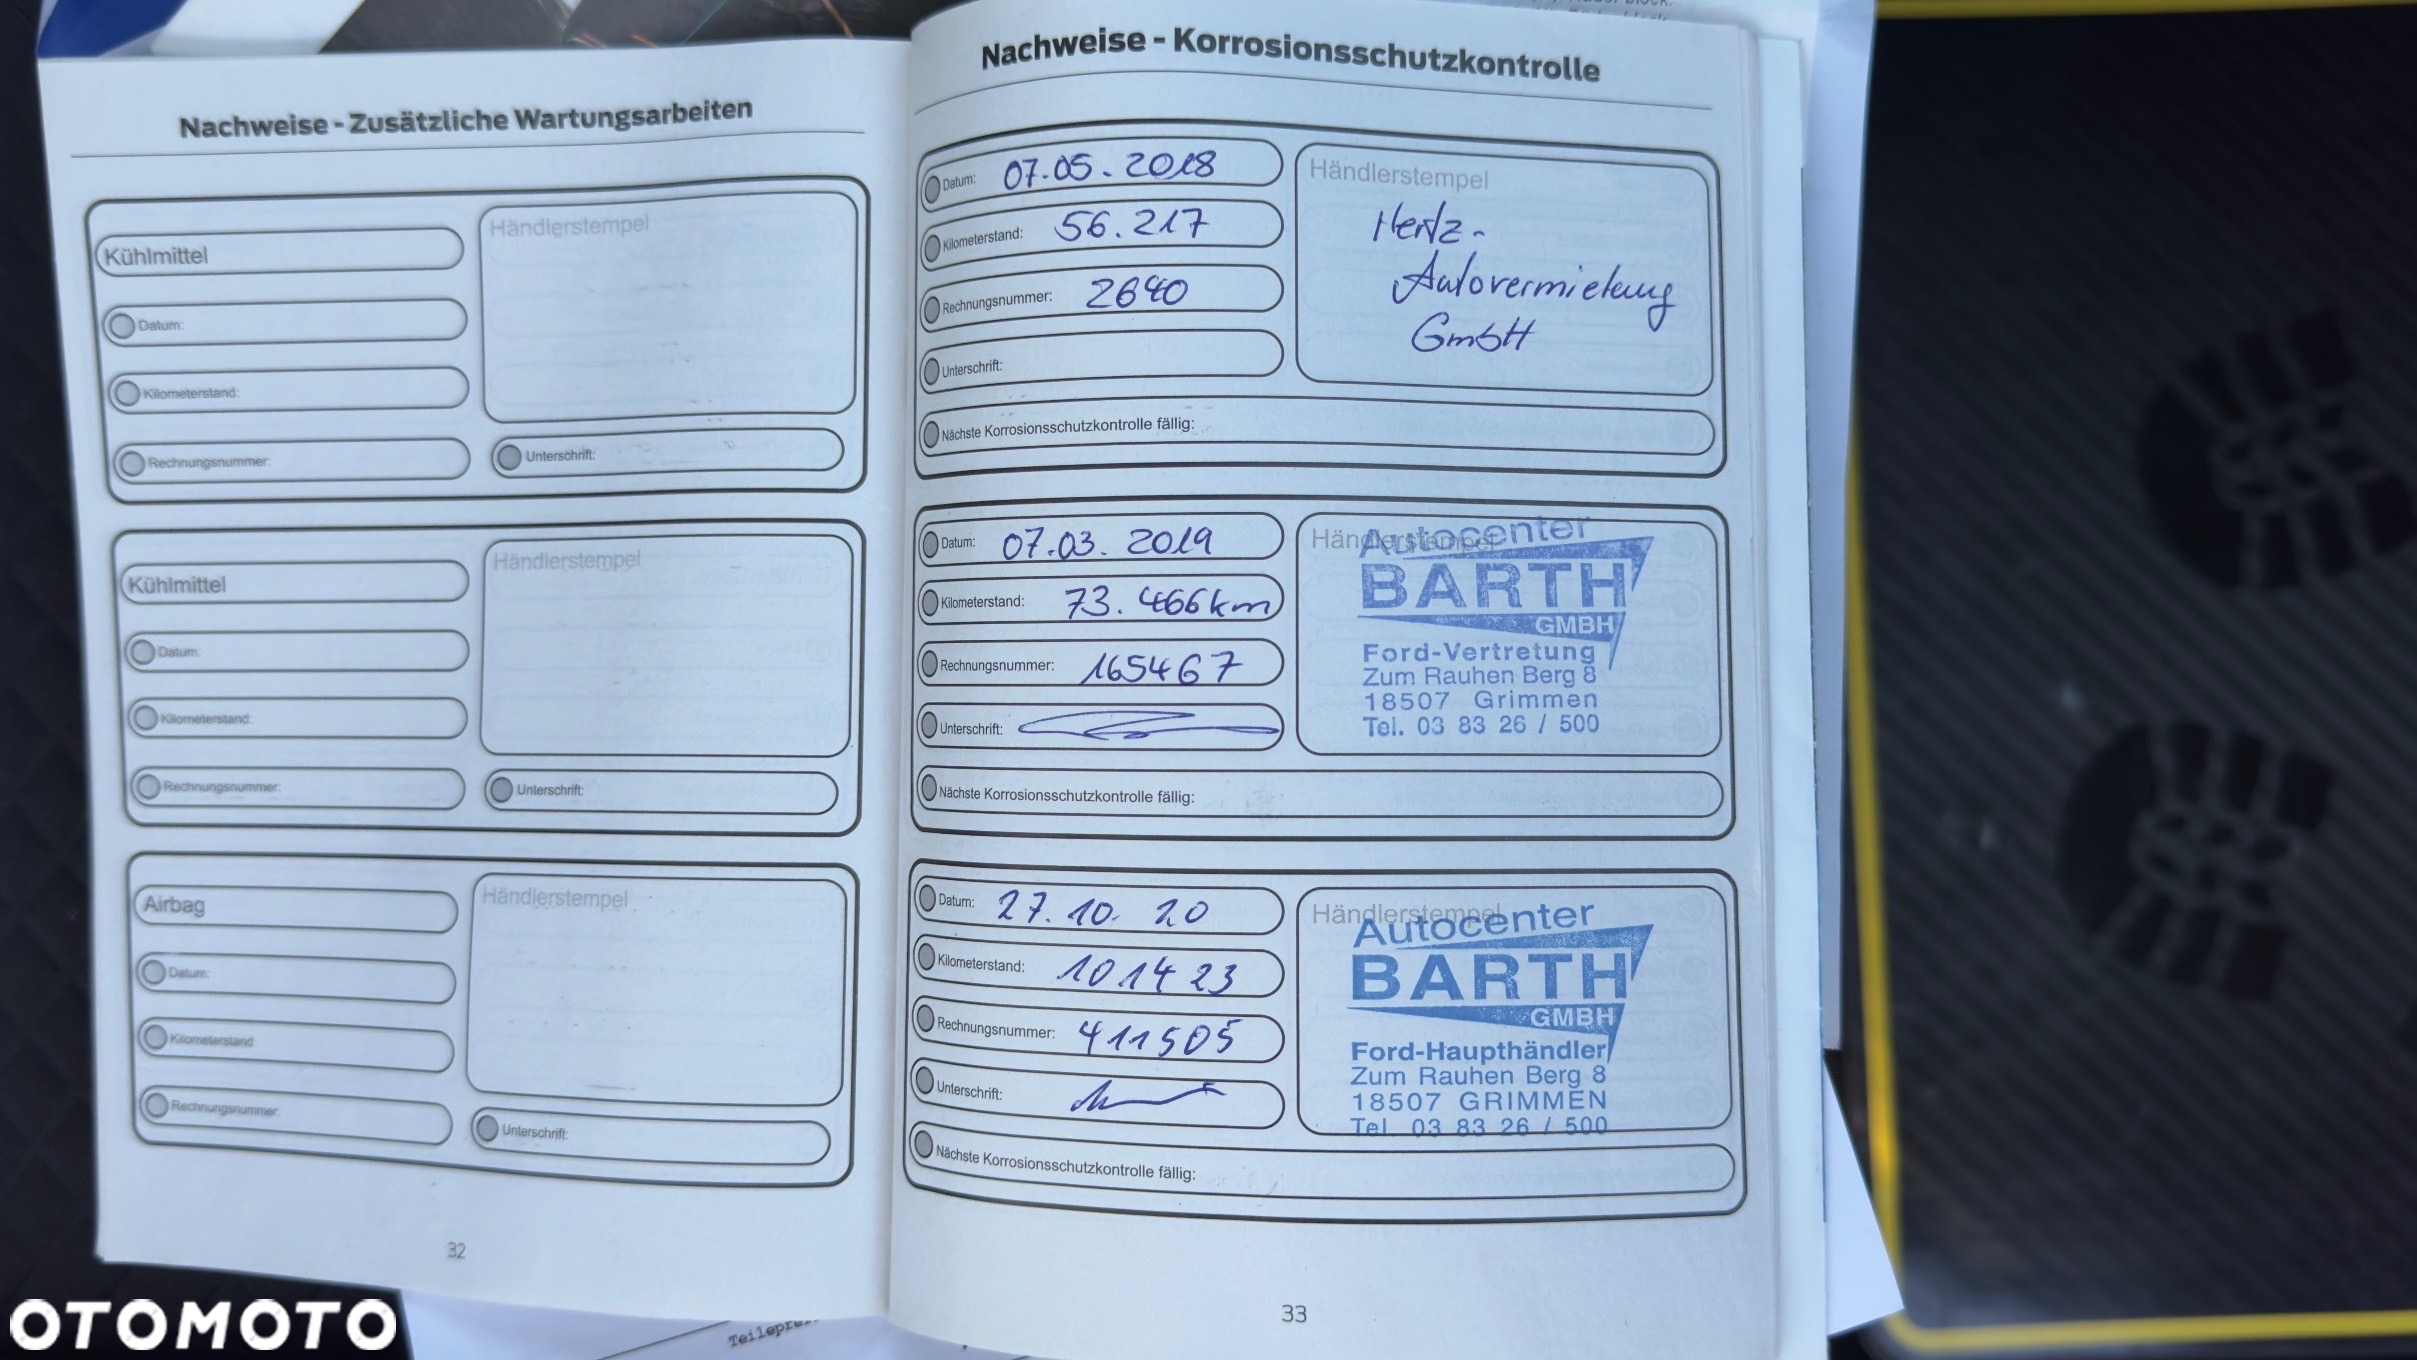 Nachweise - Zusätzliche Wartungsarbeiten
Kühlmittel
Händlerstempel
Datum:
Kilometerstand:
Rechnungsnummer:
Unterschrift:
Kühlmittel
Händlerstempel
Datum:
Kilometerstand:
Rechnungsnummer:
Unterschrift:
Airbag
Händlerstempel
Datum:
Kilometerstand:
Rechnungsnummer:
Unterschrift:
32
Nachweise - Korrosionsschutzkontrolle
Datum: 07.05.2018
Kilometerstand: 56.217
Rechnungsnummer: 2640
Unterschrift:
Händlerstempel
Hertz-
Autovermietung
GmbH
Nächste Korrosionsschutzkontrolle fällig:
Datum: 07.03.2019
Kilometerstand: 73.466km
Rechnungsnummer: 165467
Unterschrift:
Händlerstempel
Autocenter
BARTH
GMBH
Ford-Vertretung
Zum Rauhen Berg 8
18507 Grimmen
Tel. 03 83 26 / 500
Nächste Korrosionsschutzkontrolle fällig:
Datum: 27.10.20
Kilometerstand: 101423
Rechnungsnummer: 411505
Unterschrift:
Händlerstempel
Autocenter
BARTH
GMBH
Ford-Haupthändler
Zum Rauhen Berg 8
18507 GRIMMEN
Tel. 03 83 26 / 500
Nächste Korrosionsschutzkontrolle fällig:
33
OTOMOTO